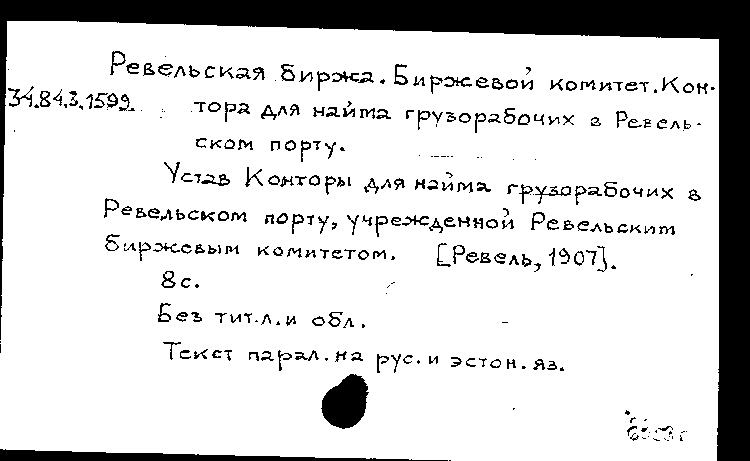 Ревельская биржа. Биржевой комитет. Кон-
34.84.3.1599. тора для найма грузорабочих в Ревель-
ском порту.
Устав Конторы для найма грузорабочих в
Ревельском порту, учрежденной Ревельским
биржевым комитетом. [Ревель, 1907].
8 с.
Без тит. л. и обл.
Текст парал. на рус. и эстон. яз.